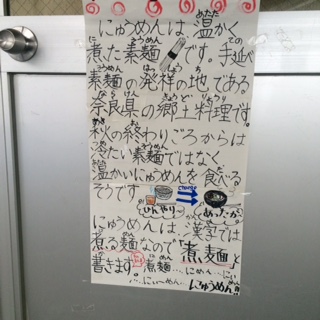 にゅうめんは温かく
煮た素麺です。手延べ
素麺の発祥の地である
奈良県の郷土料理です。
秋の終わりごろからは
冷たい素麺ではなく
温かいにゅうめんを食べる
そうです
CHANGE
ひんやり
あったか
にゅうめんは、漢字では
煮る麺なので「煮麺」と
書きます。煮麺…にめん…にぃ
…にぃーめん…
にゅうめん!!